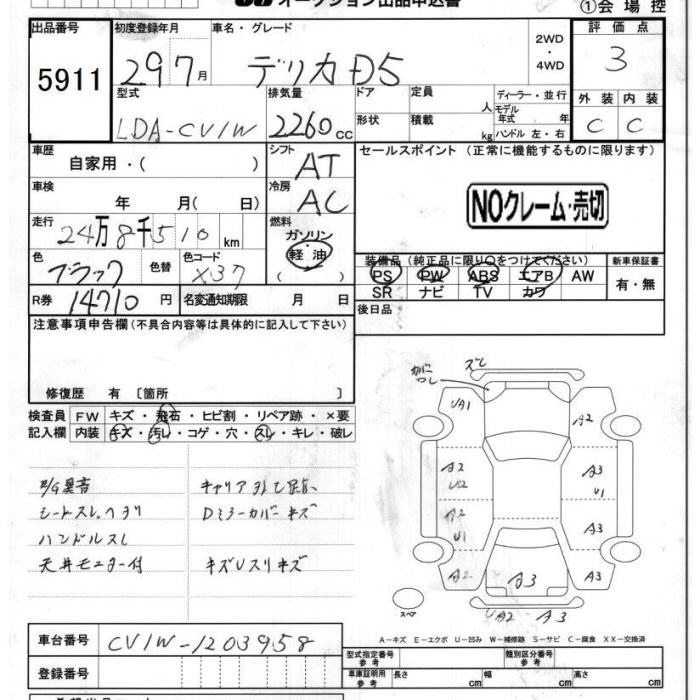 オークション出品申込書
①会場控
出品番号
5911
初度登録年月
29 7月
車名・グレード
デリカD5
2WD
・
4WD
評価点
3
型式
LDA-CV1W
排気量
2260cc
ドア
形状
定員 人
積載 kg
ディーラー・並行
モデル年式 年
ハンドル 左・右
外装
C
内装
C
車歴
自家用・( )
シフト
AT
セールスポイント (正常に機能するものに限ります)
車検
年 月( 日)
冷房
AC
NOクレーム・売切
走行
24万8千510km
燃料
ガソリン
軽油
( )
色
ブラック
色替
色コード
X37
装備品(純正品に限り○をつけてください)
PS PW ABS エアB AW
SR ナビ TV カワ
新車保証書
有・無
R券
14710円
名変通知期限 月 日
後日品
注意事項申告欄(不具合内容等は具体的に記入して下さい)
修復歴 有 〔箇所 〕
検査員
記入欄
FW キズ・飛石・ヒビ割・リペア跡・×要
内装 キズ・汚レ・コゲ・穴・スレ・キレ・破レ
E/G異音
シートスレ、ヘタリ
ハンドルスレ
天井モニター付
Dミラーカバーキズ
キズUスリキズ
UA1
A2
A2
U2
A3
U1
A2
U1
A3
A2
A3
A3
スペア
UA2 A3
A-キズ E-エクボ U-凹み W-補修跡 S-サビ C-腐食 XX-交換済
車台番号
CV1W-1203958
登録番号
型式指定番号
参考
類別区分番号
参考
車庫証明用
参考
長さ cm
幅 cm
高さ cm